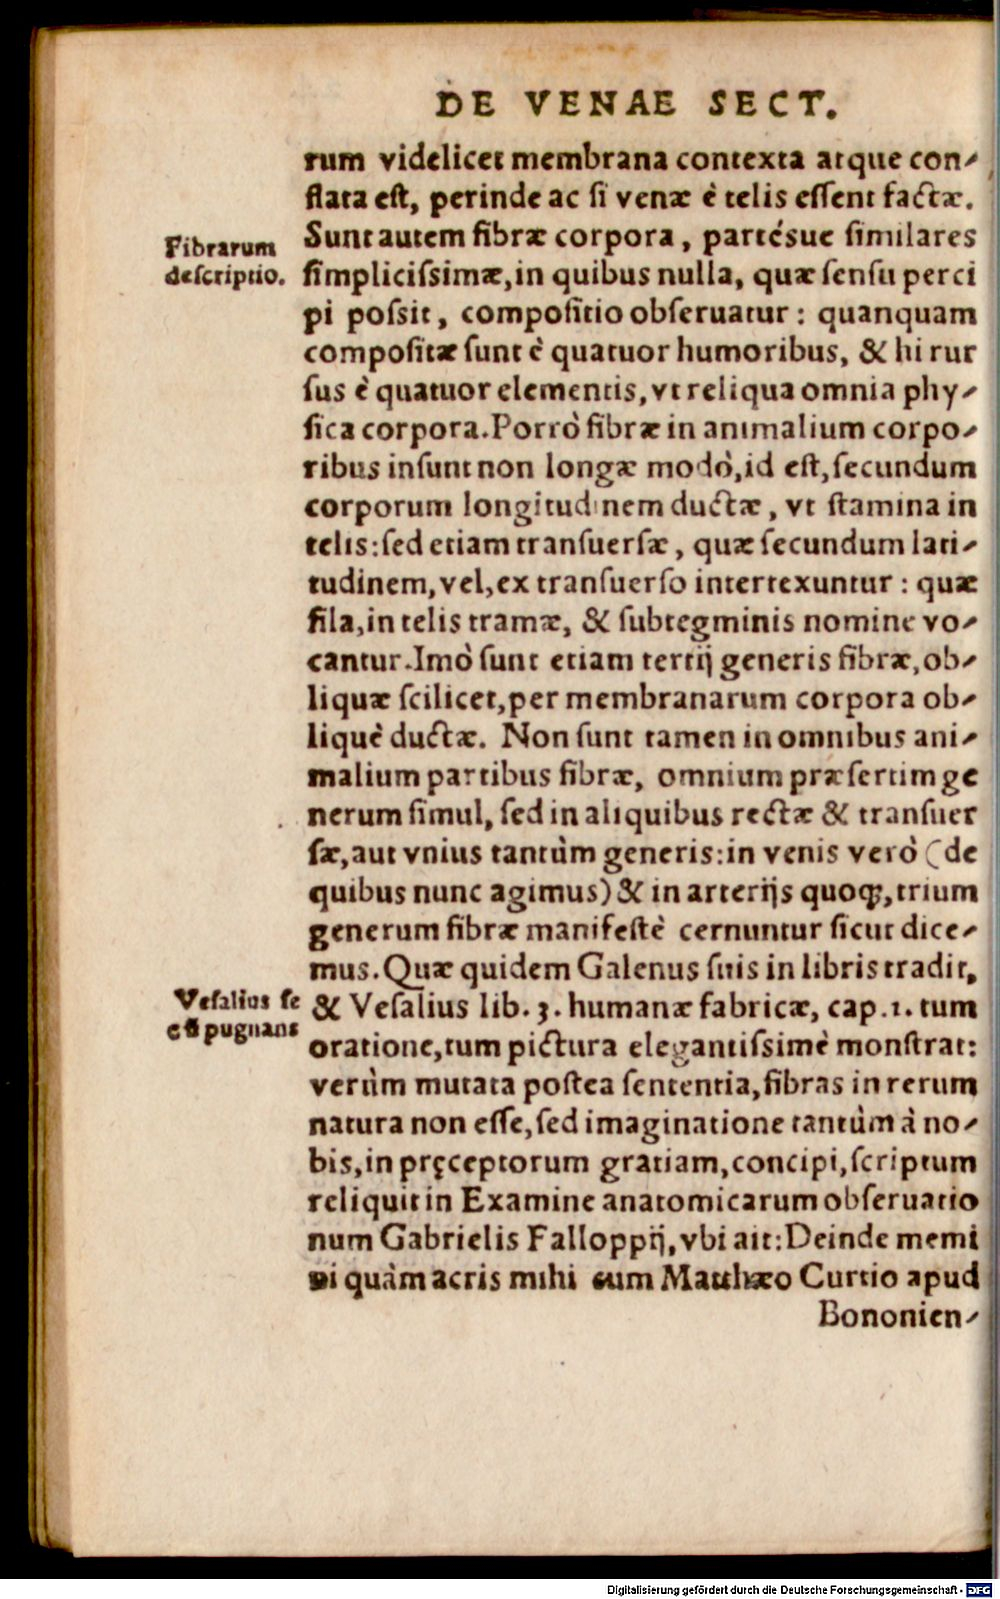 DE VENAE SECT.
rum videlicet membrana contexta atque con-
flata est, perinde ac si venæ è telis essent factæ.
Fibrarum
descriptio.
Sunt autem fibræ corpora, partésue similares
simplicissimæ, in quibus nulla, quæ sensu perci
pi possit, compositio obseruatur: quanquam
compositæ sunt è quatuor humoribus, & hi rur
sus è quatuor elementis, vt reliqua omnia phy-
sica corpora. Porrò fibræ in animalium corpo-
ribus insunt non longæ modò, id est, secundum
corporum longitudinem ductæ, vt stamina in
telis: sed etiam transuersæ, quæ secundum lati-
tudinem, vel, ex transuerso intertexuntur: quæ
fila, in telis tramæ, & subtegminis nomine vo-
cantur. Imò sunt etiam tertij generis fibræ, ob-
liquæ scilicet, per membranarum corpora ob-
liquè ductæ. Non sunt tamen in omnibus ani-
malium partibus fibræ, omnium præsertim ge
nerum simul, sed in aliquibus rectæ & transuer
sæ, aut vnius tantùm generis: in venis verò (de
quibus nunc agimus) & in arterijs quoq;, trium
generum fibræ manifestè cernuntur sicut dice-
mus. Quæ quidem Galenus suis in libris tradit,
Vesalius se
cū pugnans
& Vesalius lib. 3. humanæ fabricæ, cap. 1. tum
oratione, tum pictura elegantissimè monstrat:
verùm mutata postea sententia, fibras in rerum
natura non esse, sed imaginatione tantùm à no-
bis, in pręceptorum gratiam, concipi, scriptum
reliquit in Examine anatomicarum obseruatio
num Gabrielis Falloppij, vbi ait: Deinde memi
ni quàm acris mihi cum Matthæo Curtio apud
Bononien-
Digitalisierung gefördert durch die Deutsche Forschungsgemeinschaft - DFG